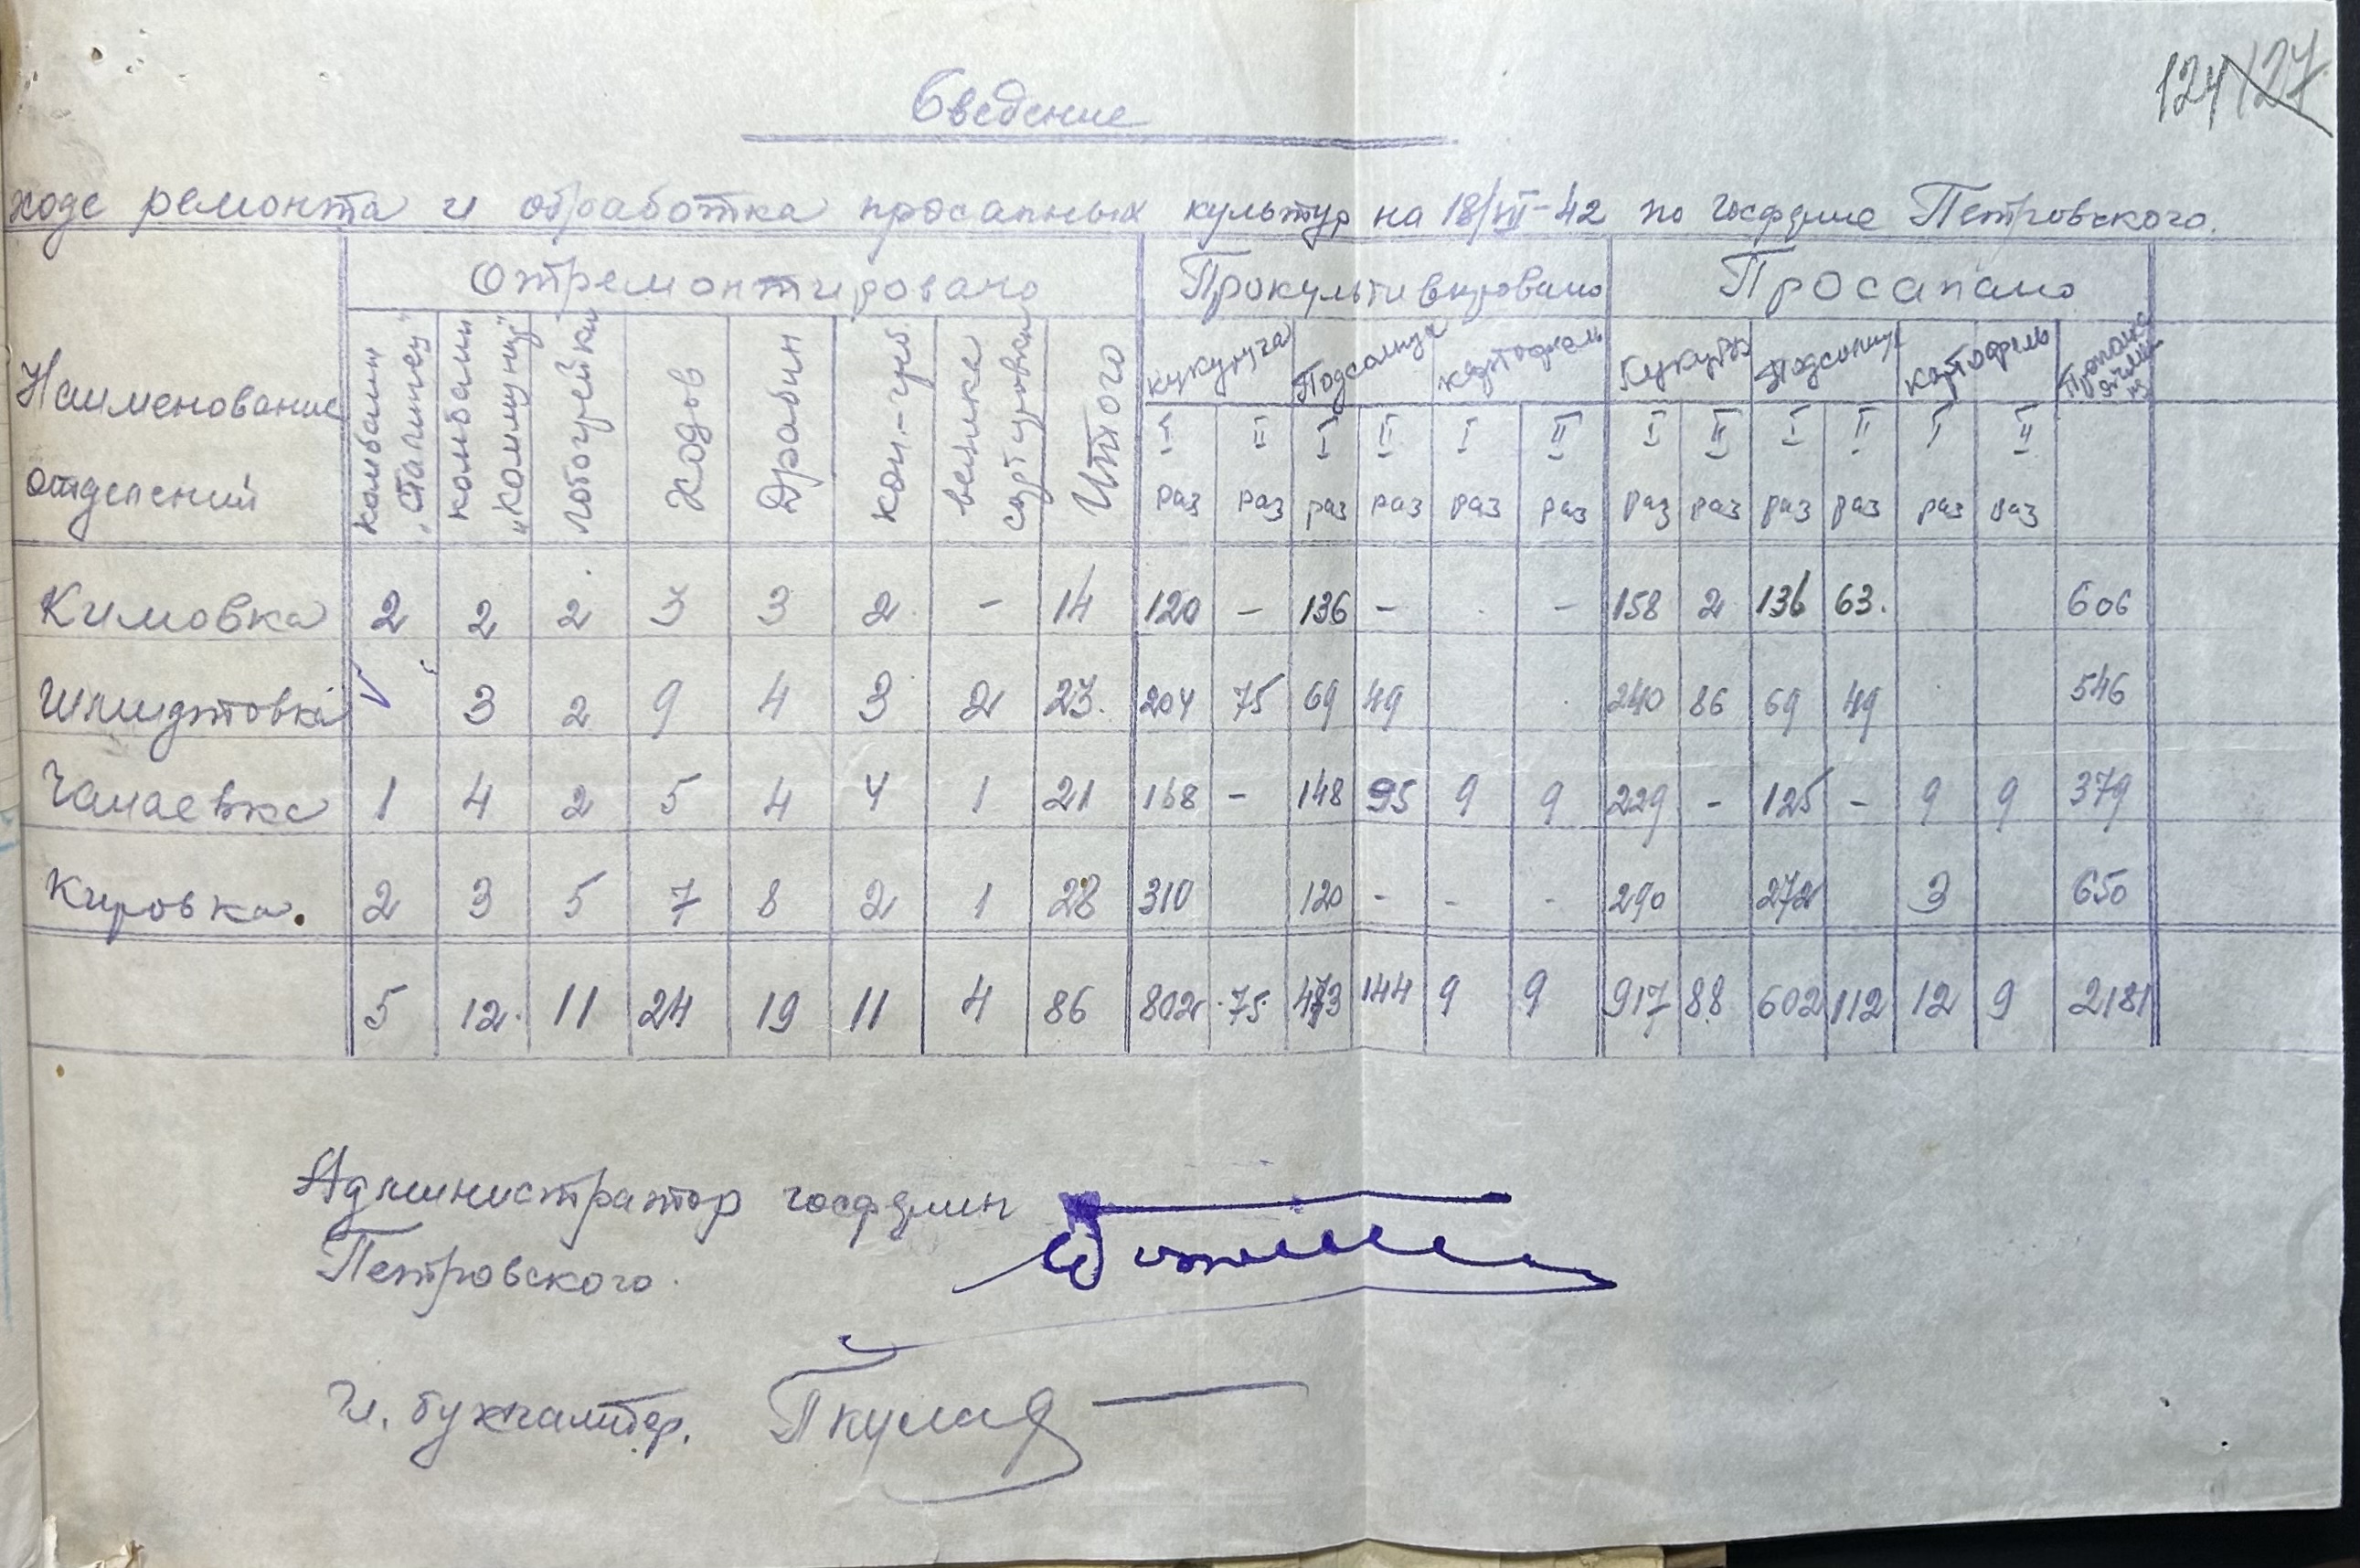 124 127
Сведение
ходе ремонта и обработка просапных культур на 18/VII-42 по госфдме Петровского.
Наименование отделений | Отремонтировано | Прокультивировано | Просапано
комбайн "Сталинец" | комбайн "Коммунар" | лобогрейки | Ходов | Драбин | кон-граб | веялка сортировка | Итого | кукуруза | Подсолнух | картофель | Кукуруз | Подсолнух | картофель | Прополка
I раз | II раз | I раз | II раз | I раз | II раз | I раз | II раз | I раз | II раз | I раз | II раз
Кимовка | 2 | 2 | 2 | 3 | 3 | 2 | - | 14 | 120 | - | 136 | - | | - | 158 | 2 | 136 | 63. | | | 606
Шмидтовка | V | 3 | 2 | 9 | 4 | 3 | 2 | 23. | 204 | 75 | 69 | 49 | | | 240 | 86 | 69 | 49 | | | 546
Чапаевка | 1 | 4 | 2 | 5 | 4 | 4 | 1 | 21 | 168 | - | 148 | 95 | 9 | 9 | 229 | - | 125 | - | 9 | 9 | 379
Кировка. | 2 | 3 | 5 | 7 | 8 | 2 | 1 | 28 | 310 | | 120 | - | - | - | 290 | | 272 | | 3 | | 650
5 | 12. | 11 | 24 | 19 | 11 | 4 | 86 | 802 | 75 | 473 | 144 | 9 | 9 | 917 | 88 | 602 | 112 | 12 | 9 | 2181
Администратор госфдмин
Петровского.
И. бухгалтер.